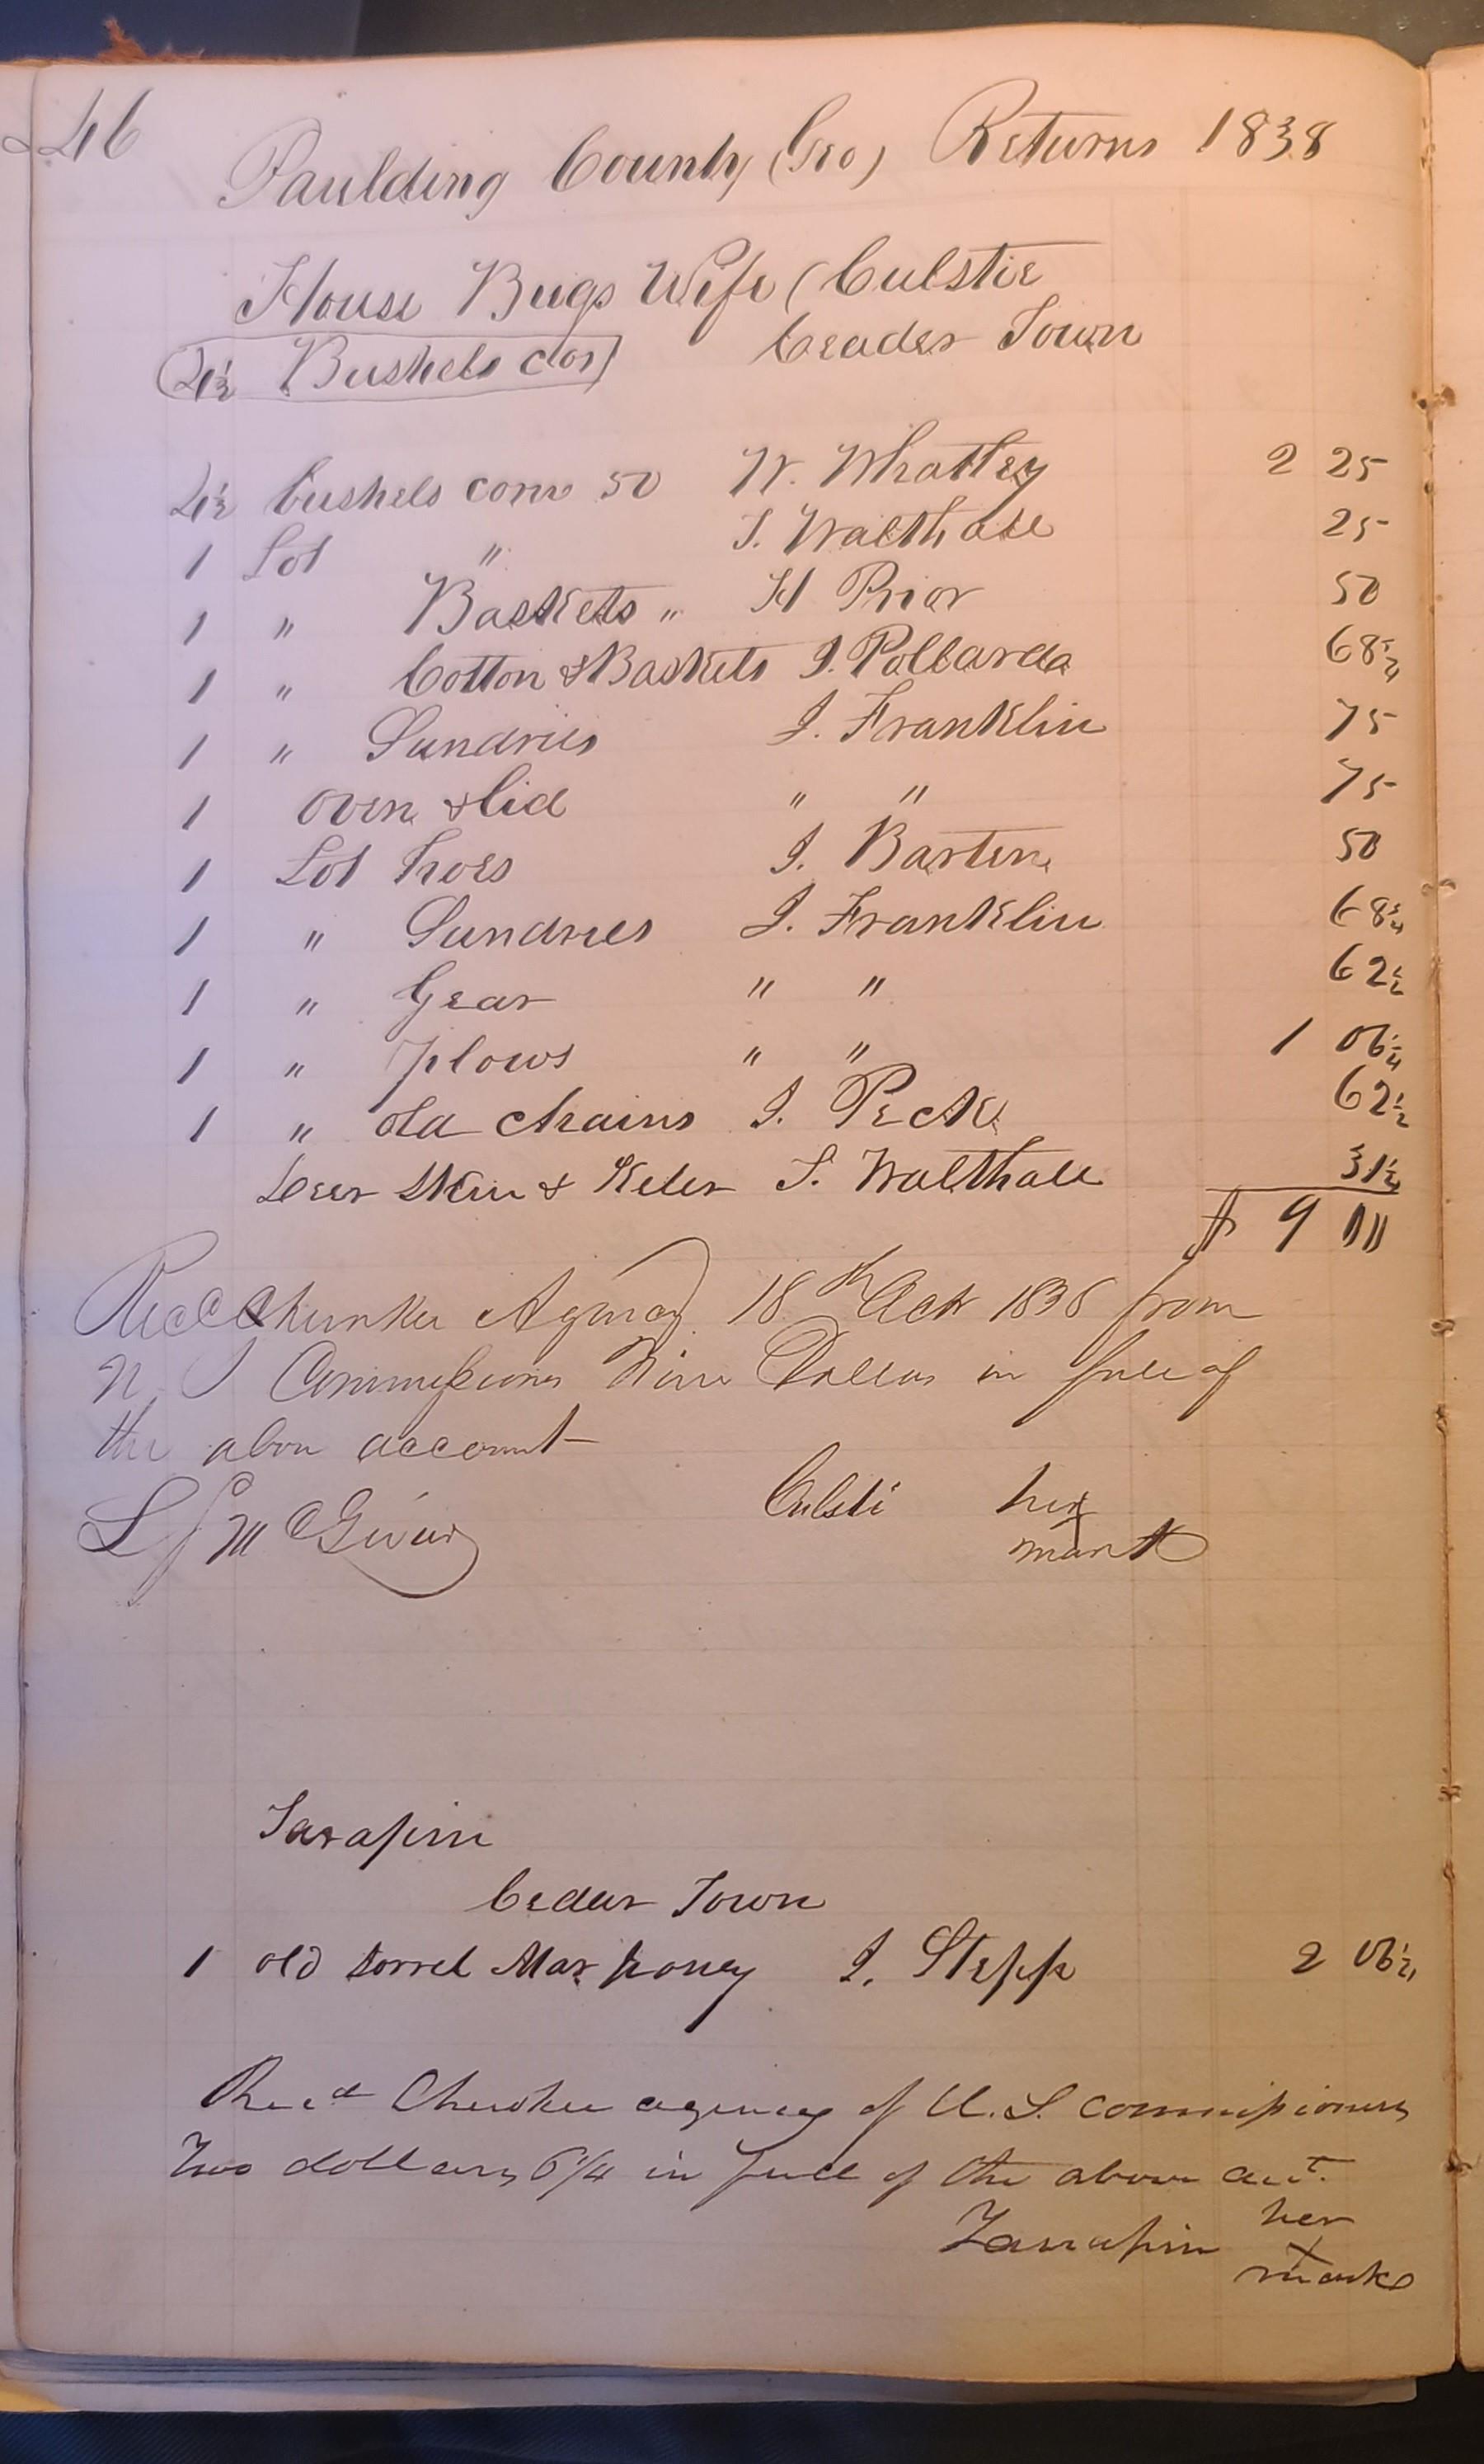 46
Paulding County (Geo) Returns 1838
House Bugs Wife (Culstie
4½ Bushels cor Ceader Town
4½ bushels corn 50 W. Whatley 2 25
1 Lot " T. Walthall 25
1 " Baskets " H Prior 50
1 " Cotton & Baskets J. Pollard 68¾
1 " Sundries J. Franklin 75
1 oven & lid " " 75
1 Lot hoes J. Barten 50
1 " Sundries J. Franklin 68¾
1 " Gear " " 62½
1 " plows " " 1 06¼
1 " old chains J. Peck 62½
Deer Skin & T. Walthall 31¼
$ 9 00
Recd Cherokee Agency 18th Octr 1838 from
Commissioners Nine Dollars in full of
the above account
Culsti her
mark
Tarapin
Cedar Town
1 old sorrel Mar poney J. Stepp 2 06¼
Recd Cherokee agency of U.S. Commissioners
Two dollars 6¼ in full of the above acct.
Tarrapin her
x
mark